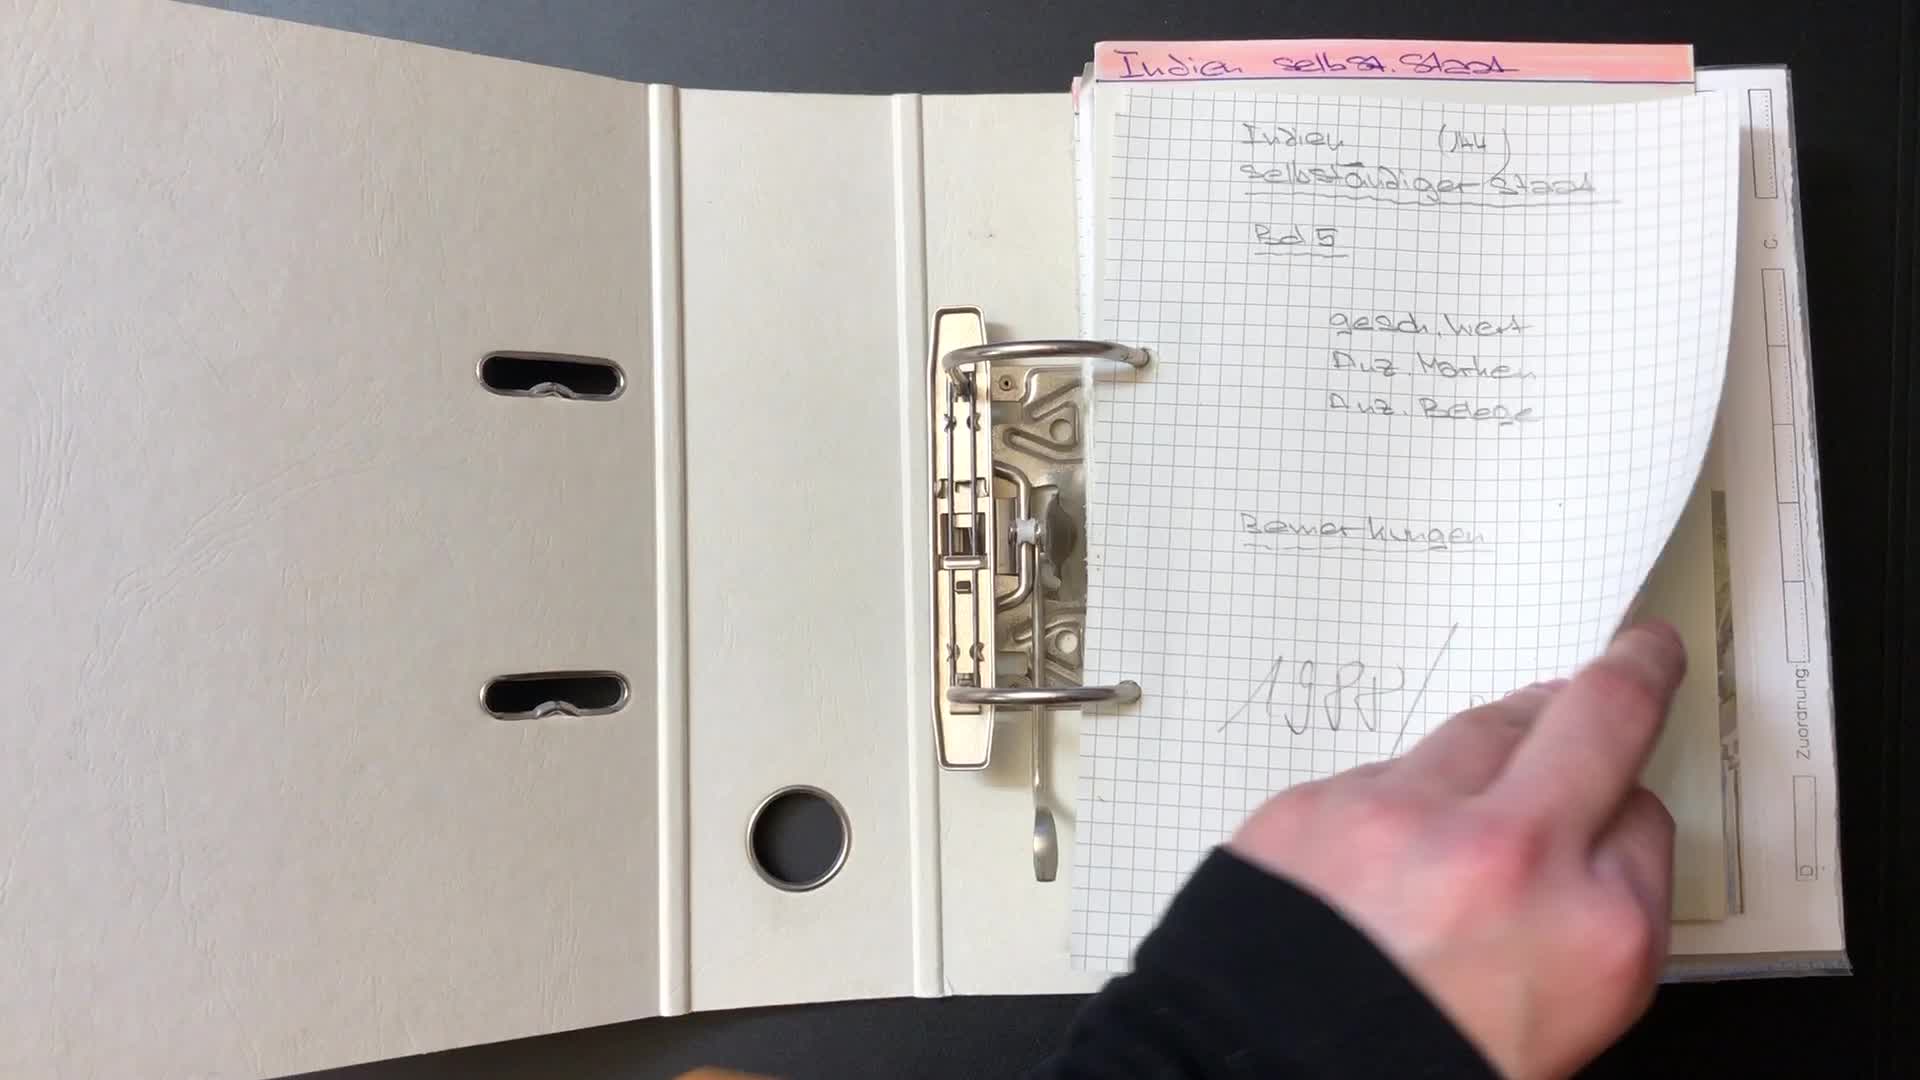 Indien selbst. Staat
Indien (144)
selbständiger Staat
Bd 5
gesch. Wert
Anz. Marken
Anz. Belege
Bemerkungen
1988/
Zuordnung:
D